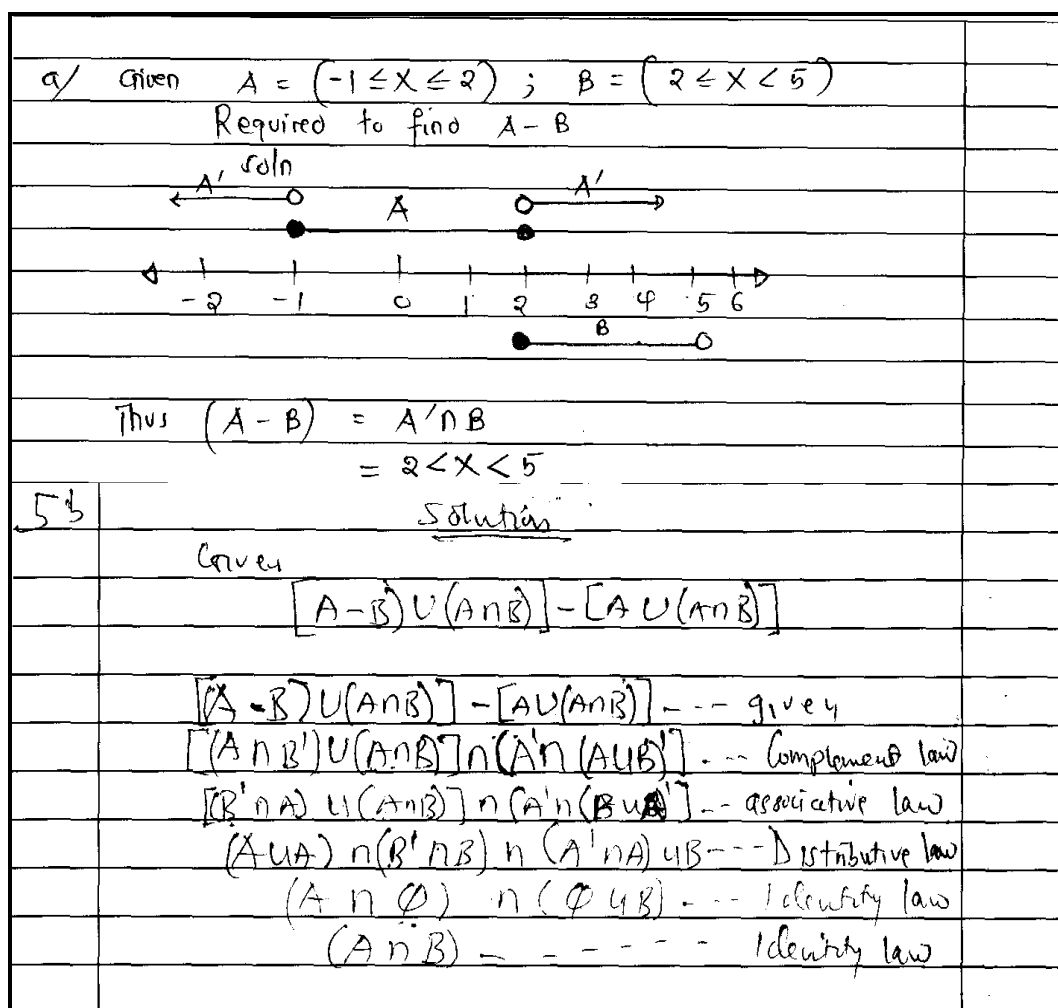 a/ Given A = (-1 ≤ X ≤ 2) ; B = ( 2 ≤ X < 5 )
Required to find A - B
soln
A' A'
A
-2 -1 0 1 2 3 4 5 6
B
Thus (A - B) = A' ∩ B
= 2 < X < 5
5b Solution
Given
[A - B) ∪ (A ∩ B)] - [A ∪ (A ∩ B)]
[(A - B) ∪ (A ∩ B)] - [A ∪ (A ∩ B)] --- given
[(A ∩ B') ∪ (A ∩ B)] ∩ (A' ∩ (A ∪ B)'] . -- Complement law
[(B' ∩ A) ∪ (A ∩ B)] ∩ (A' ∩ (B ∪ A)'] -- associative law
(A ∪ A) ∩ (B' ∩ B) ∩ (A' ∩ A) ∪ B --- Distributive law
(A ∩ φ) ∩ (φ ∪ B) - -- Identity law
(A ∩ B) - - - - - Identity law